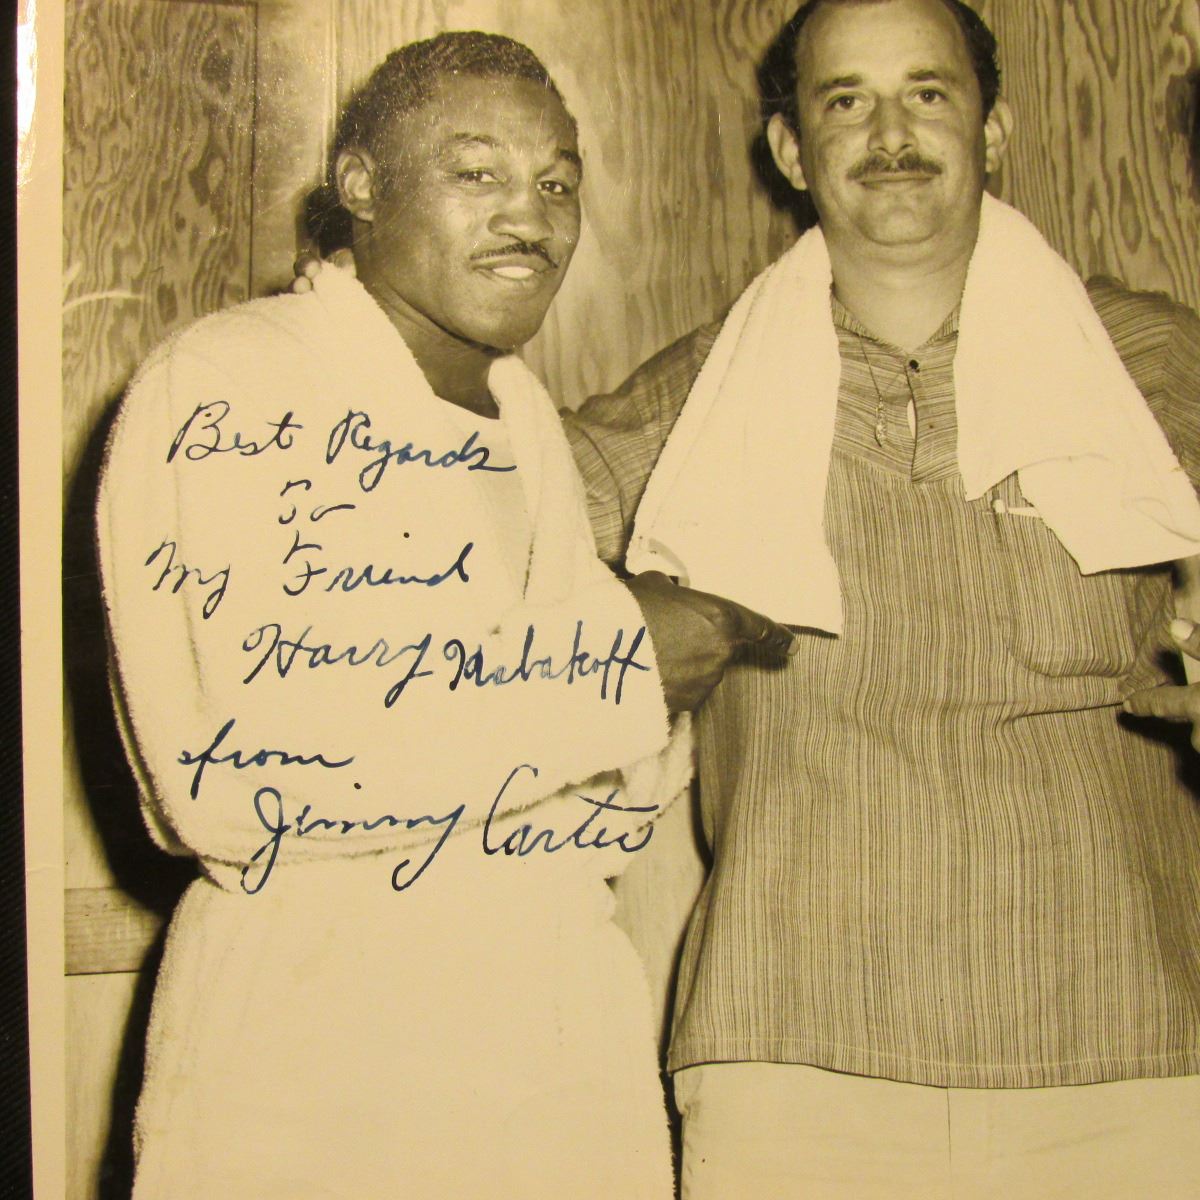 Best Regards
To
My Friend
Harry Kabakoff
from
Jimmy Carter